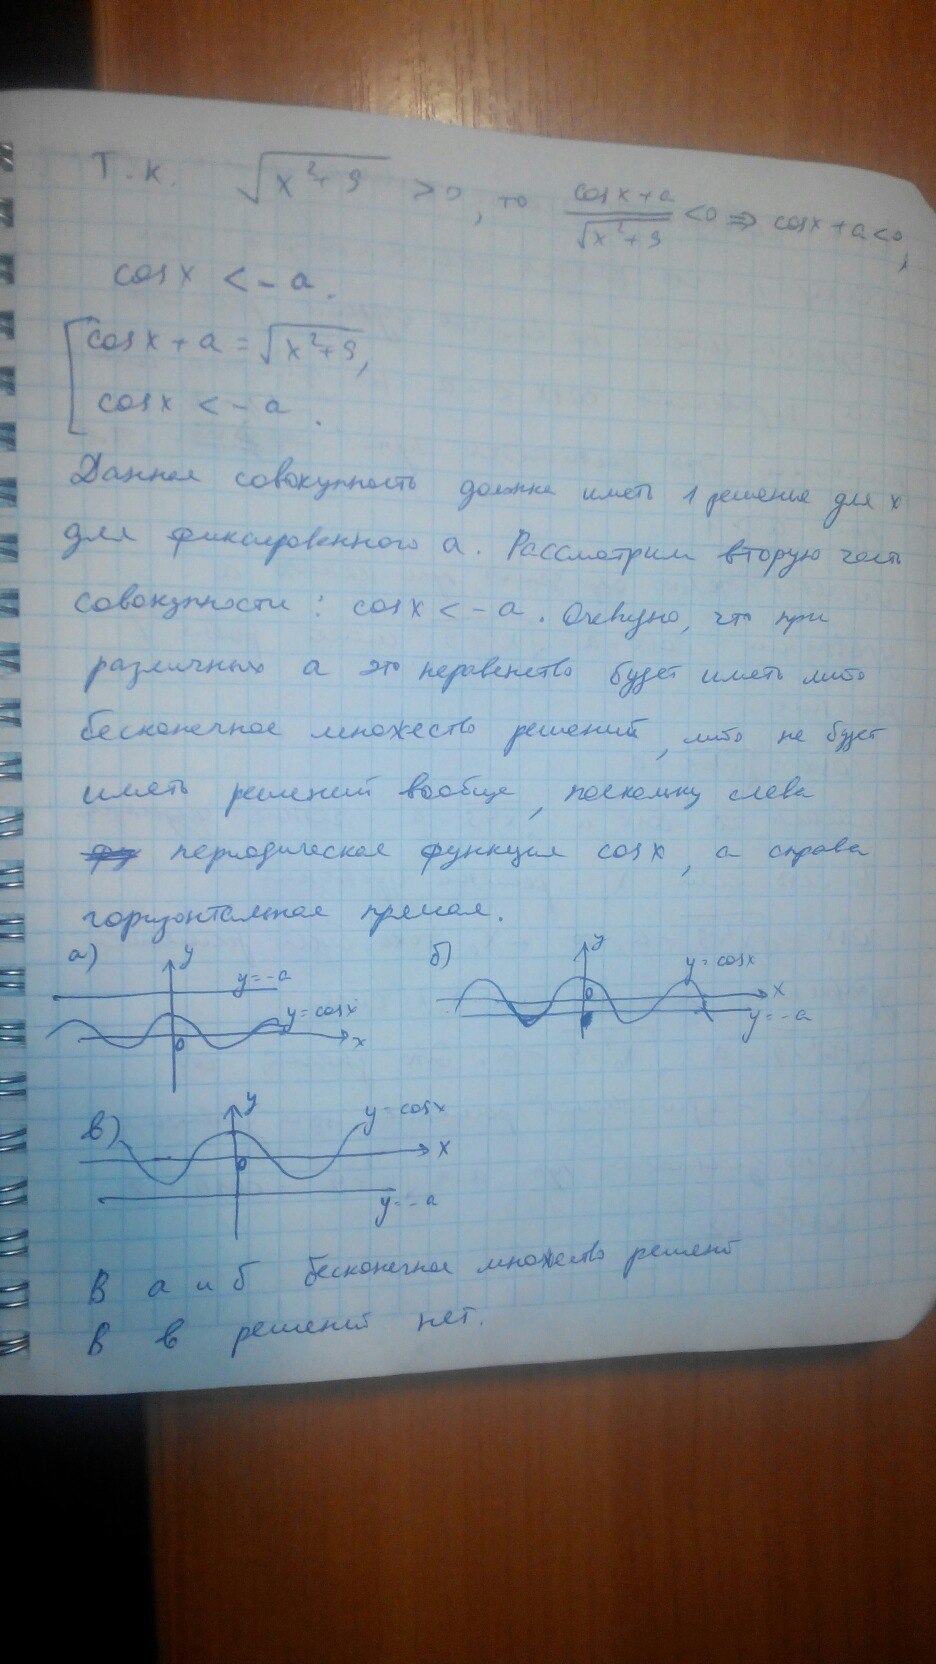 Т.к. √(x²+9) >0, то (cosx+a)/√(x²+9) <0 ⇒ cosx+a<0,
cosx < -a.
[ cosx + a = √(x²+9),
cosx < -a.
Данная совокупность должна иметь 1 решение для x
для фиксированного a. Рассмотрим вторую часть
совокупности: cosx < -a. Очевидно, что при
различных a это неравенство будет иметь либо
бесконечное множество решений, либо не будет
иметь решений вообще, поскольку слева
периодическая функция cosx, а справа
горизонтальная прямая.
а) y y=-a y=cosx x 0
б) y y=cosx x 0 y=-a
в) y y=cosx x 0 y=-a
В а и б бесконечное множество решений
В в решений нет.